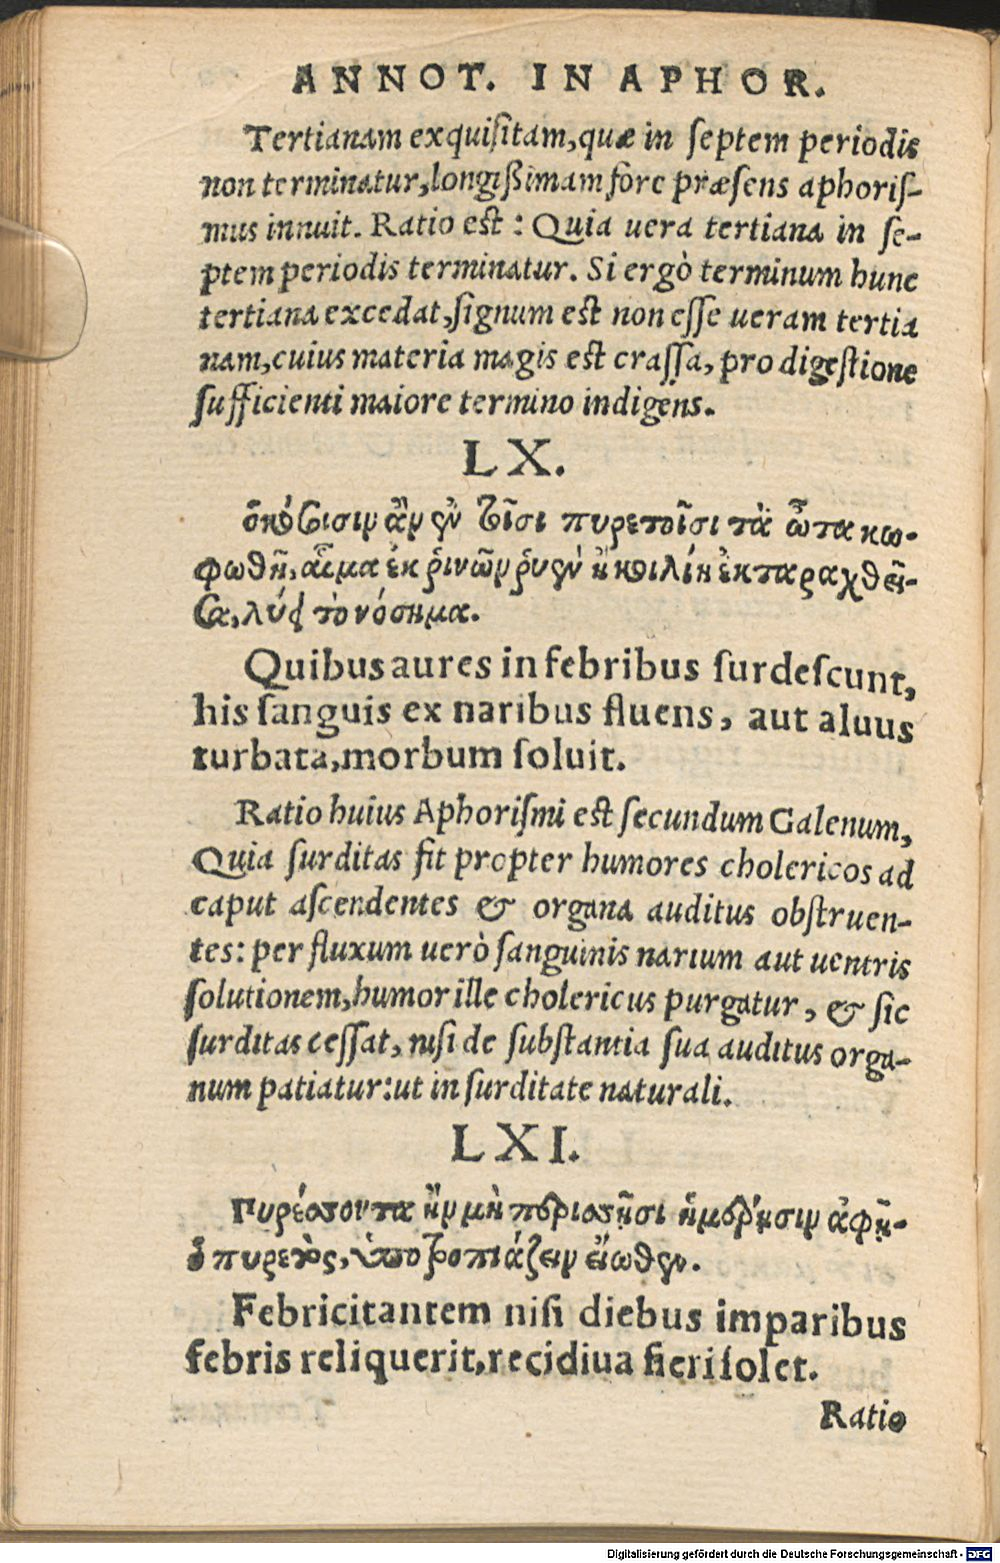 ANNOT. IN APHOR.
Tertianam exquisitam, quæ in septem periodis
non terminatur, longißimam fore præsens aphoris-
mus innuit. Ratio est: Quia uera tertiana in se-
ptem periodis terminatur. Si ergò terminum hunc
tertiana excedat, signum est non esse ueram tertia
nam, cuius materia magis est crassa, pro digestione
sufficienti maiore termino indigens.
LX.
ὁκόσοισιν ἂν ἐν τοῖσι πυρετοῖσι τὰ ὦτα κω-
φωθῇ, αἷμα ἐκ ῥινῶν ῥυὲν ἢ κοιλίη ἐκταραχθεῖ-
σα, λύει τὸ νόσημα.
Quibus aures in febribus surdescunt,
his sanguis ex naribus fluens, aut aluus
turbata, morbum soluit.
Ratio huius Aphorismi est secundum Galenum,
Quia surditas fit propter humores cholericos ad
caput ascendentes & organa auditus obstruen-
tes: per fluxum uerò sanguinis narium aut uentris
solutionem, humor ille cholericus purgatur, & sic
surditas cessat, nisi de substantia sua auditus orga-
num patiatur: ut in surditate naturali.
LXI.
Πυρέσσοντα ἢν μὴ περισσῇσι ἡμέρῃσιν ἀφῇ-
ὁ πυρετὸς, ὑποτροπιάζειν εἴωθεν.
Febricitantem nisi diebus imparibus
febris reliquerit, recidiua fieri solet.
Ratio
Digitalisierung gefördert durch die Deutsche Forschungsgemeinschaft - DFG